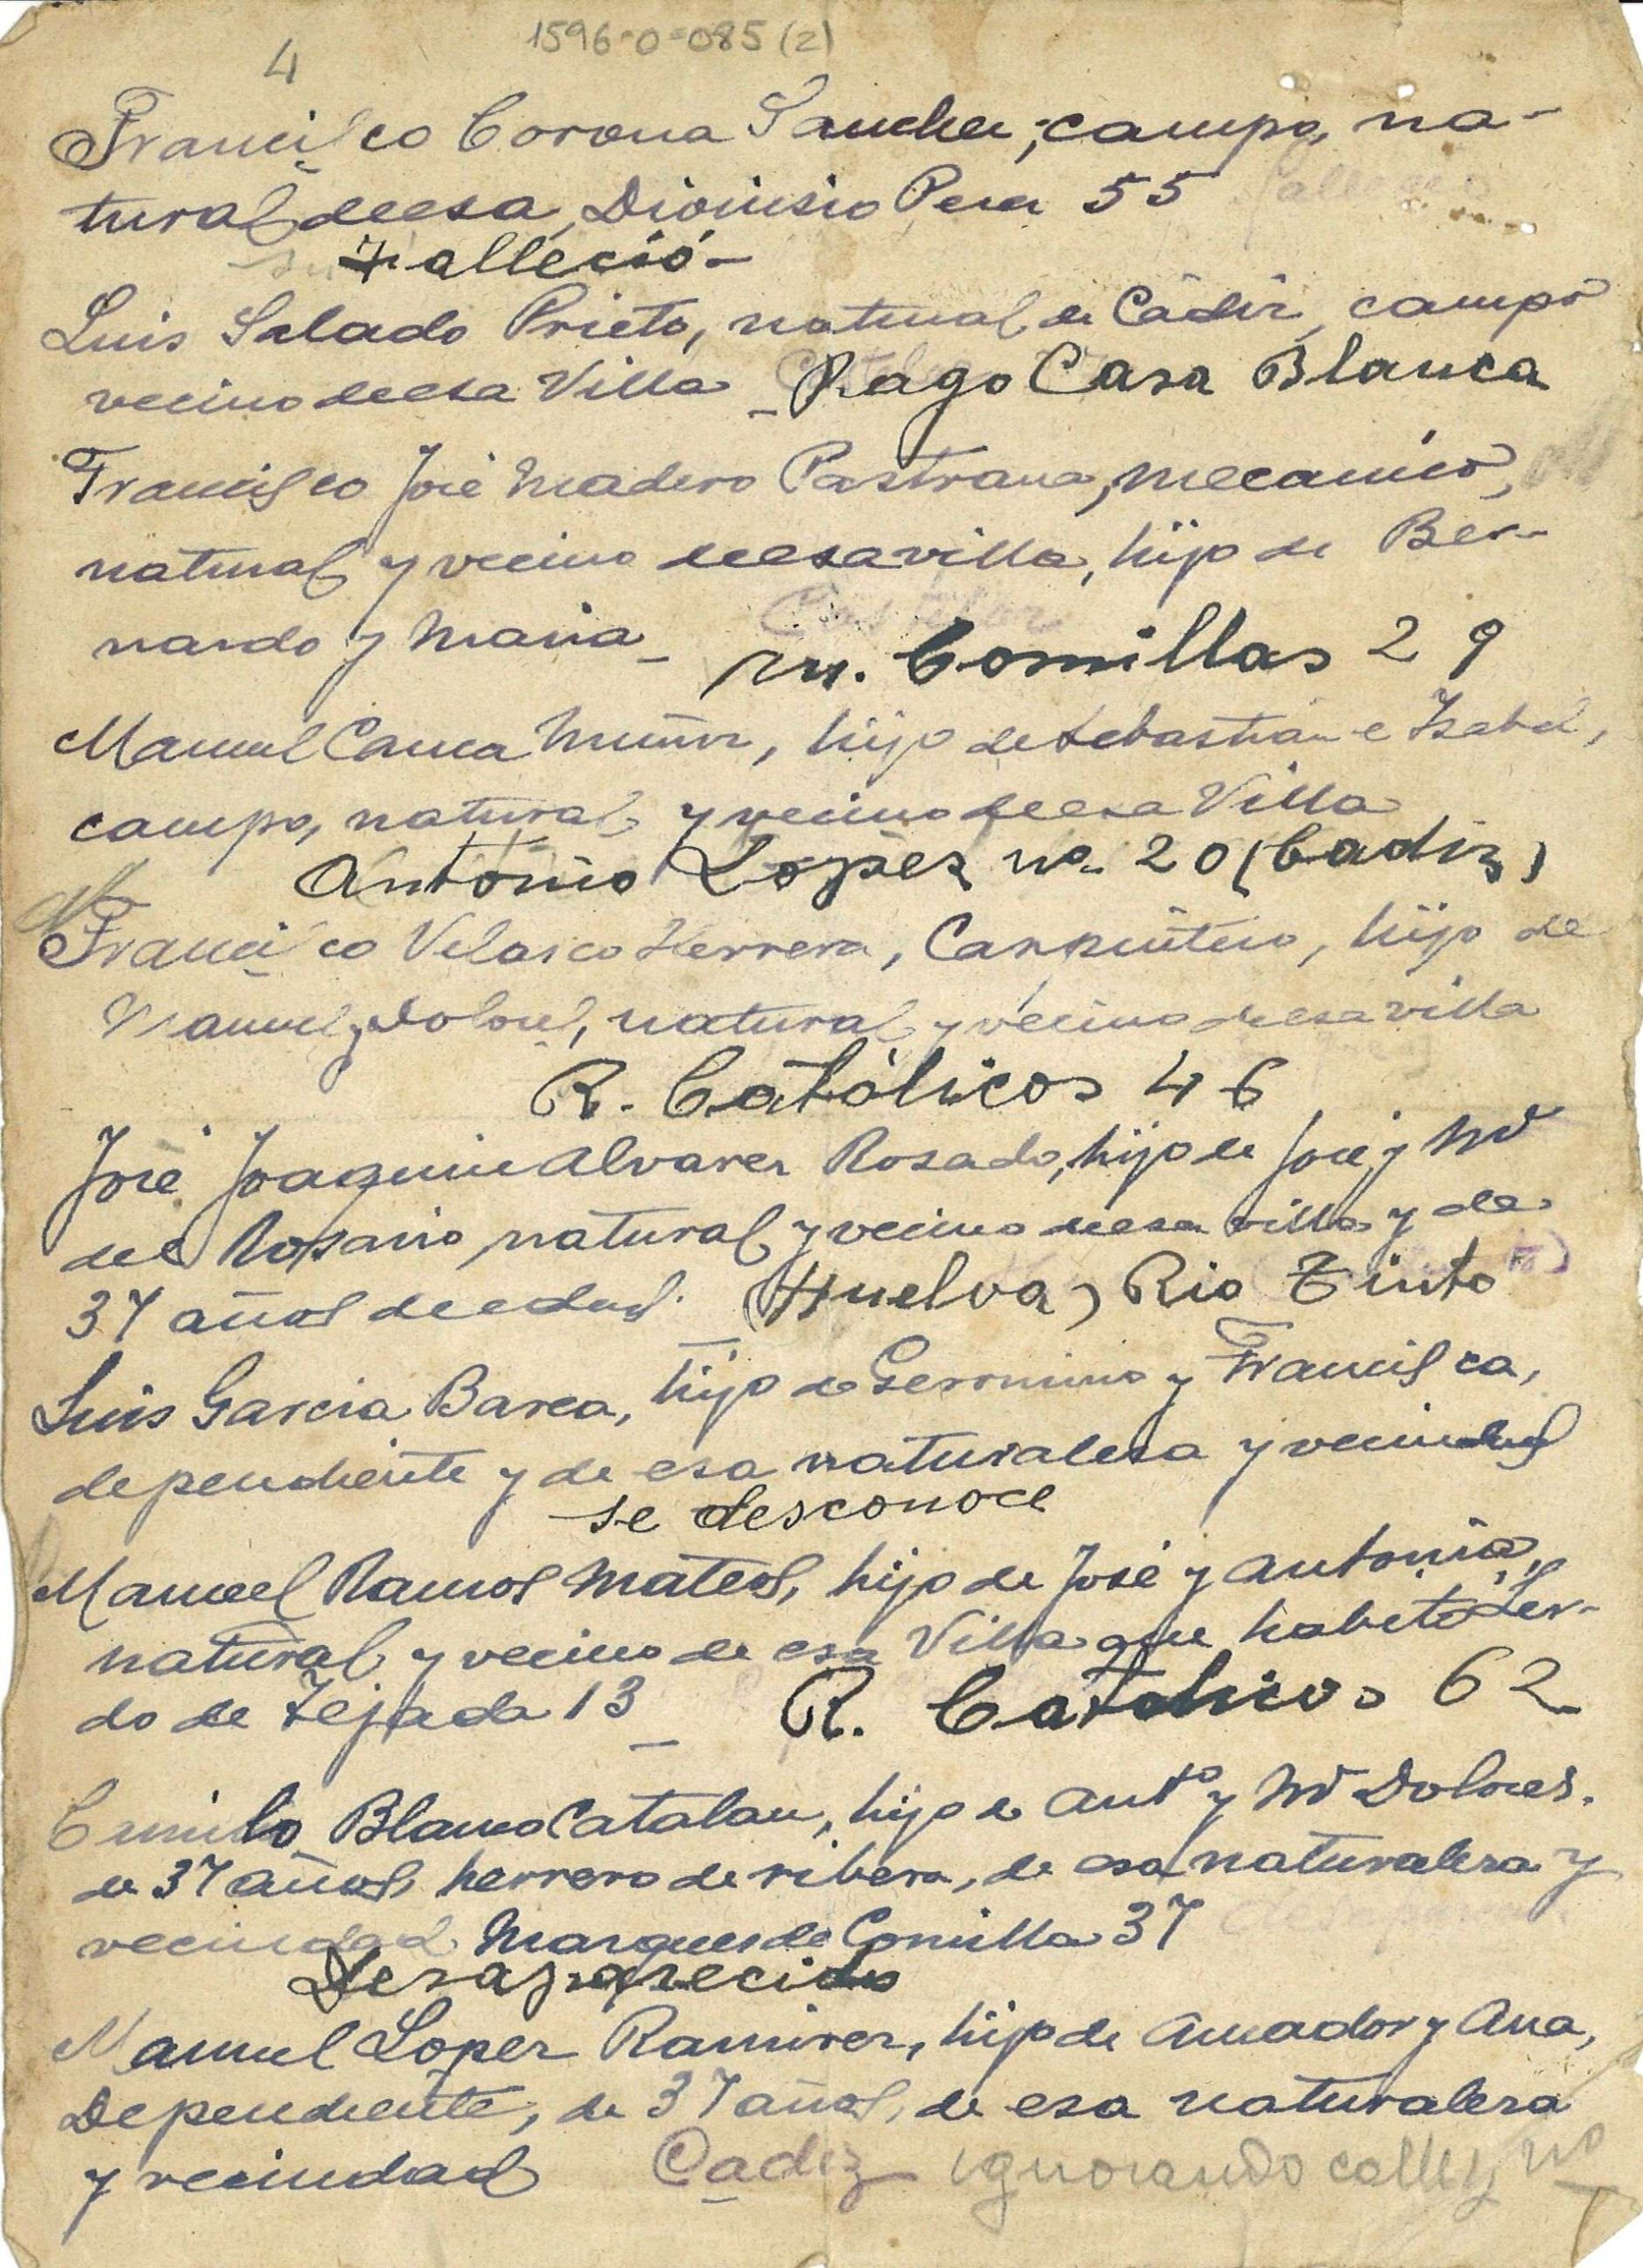 1596-0-085 (2)
4
Francisco Corona Sanchez, campo, na-
tural de esa, Dionisio Perez 55
Falleció-
Luis Salado Prieto, natural de Cádiz, campo
vecino de esa Villa - Pago Casa Blanca
Francisco José Madero Pastrana, mecanico,
natural y vecino de esa villa, hijo de Ber-
nardo y Maria - M. Comillas 29
Manuel Muñoz, hijo de Sebastian e Isabel,
campo, natural y vecino de esa Villa
Antonio Lopez no. 20 (Cadiz)
Francisco Velasco Herrera, Carpintero, hijo de
Manuel y Dolores, natural y vecino de esa villa
R. Católicos 46
José Joaquin Alvarez Rosado, hijo de José y Mª
del Rosario natural y vecino de esa villa y de
37 años de edad. (Huelva) Rio Tinto
Luis Garcia Barea, hijo de Geronimo y Francisca,
dependiente y de esa naturaleza y vecindad
se desconoce
Manuel Ramos Mateos, hijo de José y Antonia,
natural y vecino de esa Villa que habito Ler-
do de Tejada 13 - R. Catolicos 62
Camilo Blanco Catalan, hijo de Antº y Mª Dolores.
de 37 años, herrero de ribera, de esa naturaleza y
vecindad Marques de Comilla 37
Desaparecido
Manuel Lopez Ramirez, hijo de Amador y Ana,
Dependiente, de 37 años, de esa naturaleza
y vecindad Cadiz ignorando calle y nº